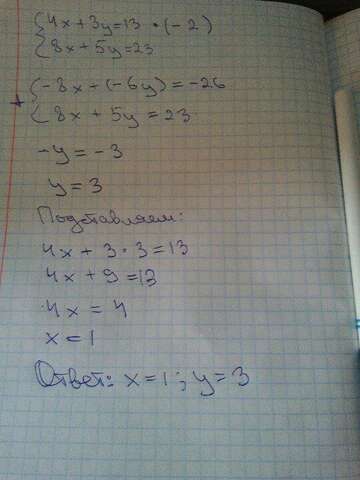 {4x + 3y = 13 · (-2)
{8x + 5y = 23
+ {-8x + (-6y) = -26
{8x + 5y = 23
-y = -3
y = 3
Подставляем:
4x + 3 · 3 = 13
4x + 9 = 13
4x = 4
x = 1
Ответ: x = 1 ; y = 3